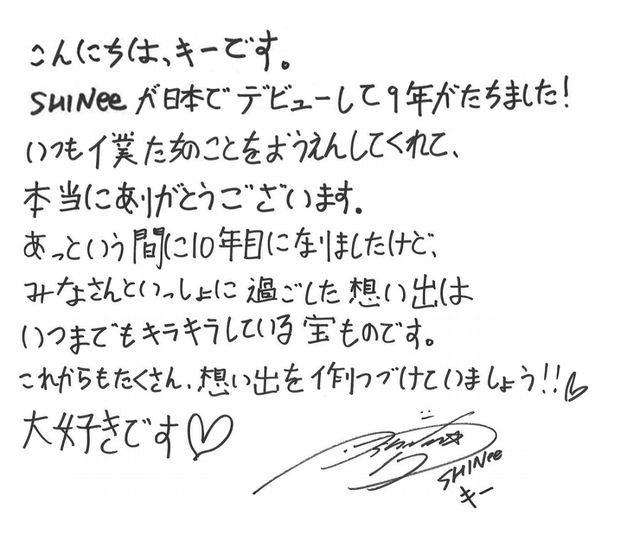 こんにちは、キーです。
SHINeeが日本でデビューして9年がたちました!
いつも僕たちのことをおうえんしてくれて、
本当にありがとうございます。
あっという間に10年目になりましたけど、
みなさんといっしょに過ごした想い出は
いつまでもキラキラしている宝ものです。
これからもたくさん、想い出を作っづけていましょう!!♡
大好きです♡
SHINee
キー